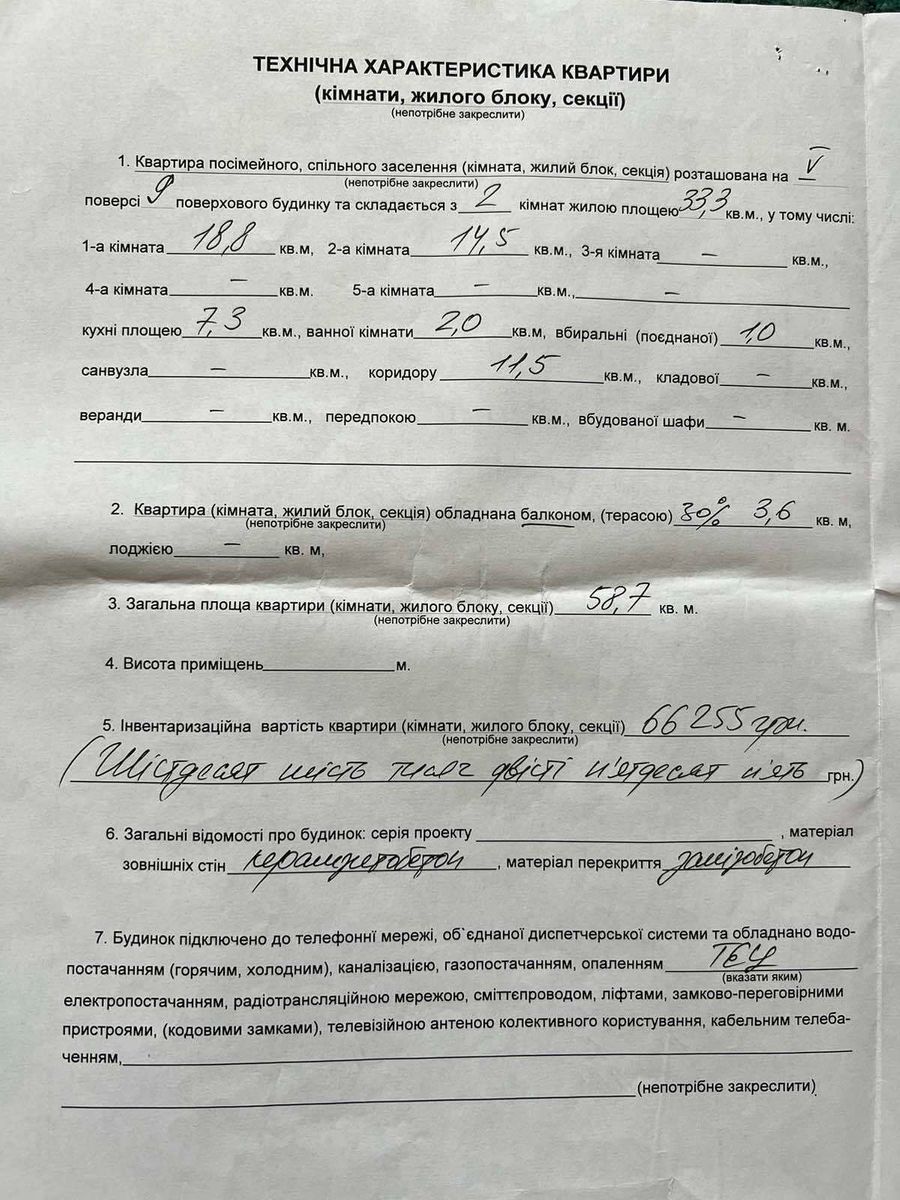 ТЕХНІЧНА ХАРАКТЕРИСТИКА КВАРТИРИ
(кімнати, жилого блоку, секції)
(непотрібне закреслити)
1. Квартира посімейного, спільного заселення (кімната, жилий блок, секція) розташована на V
(непотрібне закреслити)
поверсі 9 поверхового будинку та складається з 2 кімнат жилою площею 33,3 кв.м., у тому числі:
1-а кімната 18,8 кв.м, 2-а кімната 14,5 кв.м., 3-я кімната — кв.м.,
4-а кімната — кв.м. 5-а кімната — кв.м., —
кухні площею 7,3 кв.м., ванної кімнати 2,0 кв.м, вбиральні (поєднаної) 1,0 кв.м.,
санвузла — кв.м., коридору 11,5 кв.м., кладової — кв.м.,
веранди — кв.м., передпокою — кв.м., вбудованої шафи — кв. м.
2. Квартира (кімната, жилий блок, секція) обладнана балконом, (терасою) 30% 3,6 кв. м,
(непотрібне закреслити)
лоджією — кв. м,
3. Загальна площа квартири (кімнати, жилого блоку, секції) 58,7 кв. м.
(непотрібне закреслити)
4. Висота приміщень м.
5. Інвентаризаційна вартість квартири (кімнати, жилого блоку, секції) 66 255 грн.
(непотрібне закреслити)
(Шістдесят шість тисяч двісті п'ятдесят п'ять грн.)
6. Загальні відомості про будинок: серія проекту , матеріал
зовнішніх стін керамзитобетон , матеріал перекриття залізобетон
7. Будинок підключено до телефоннї мережі, об`єднаної диспетчерської системи та обладнано водо-
постачанням (горячим, холодним), каналізацією, газопостачанням, опаленням ТЕЦ
(вказати яким)
електропостачанням, радіотрансляційною мережою, сміттєпроводом, ліфтами, замково-переговірними
пристроями, (кодовими замками), телевізійною антеною колективного користування, кабельним телеба-
ченням,
(непотрібне закреслити)